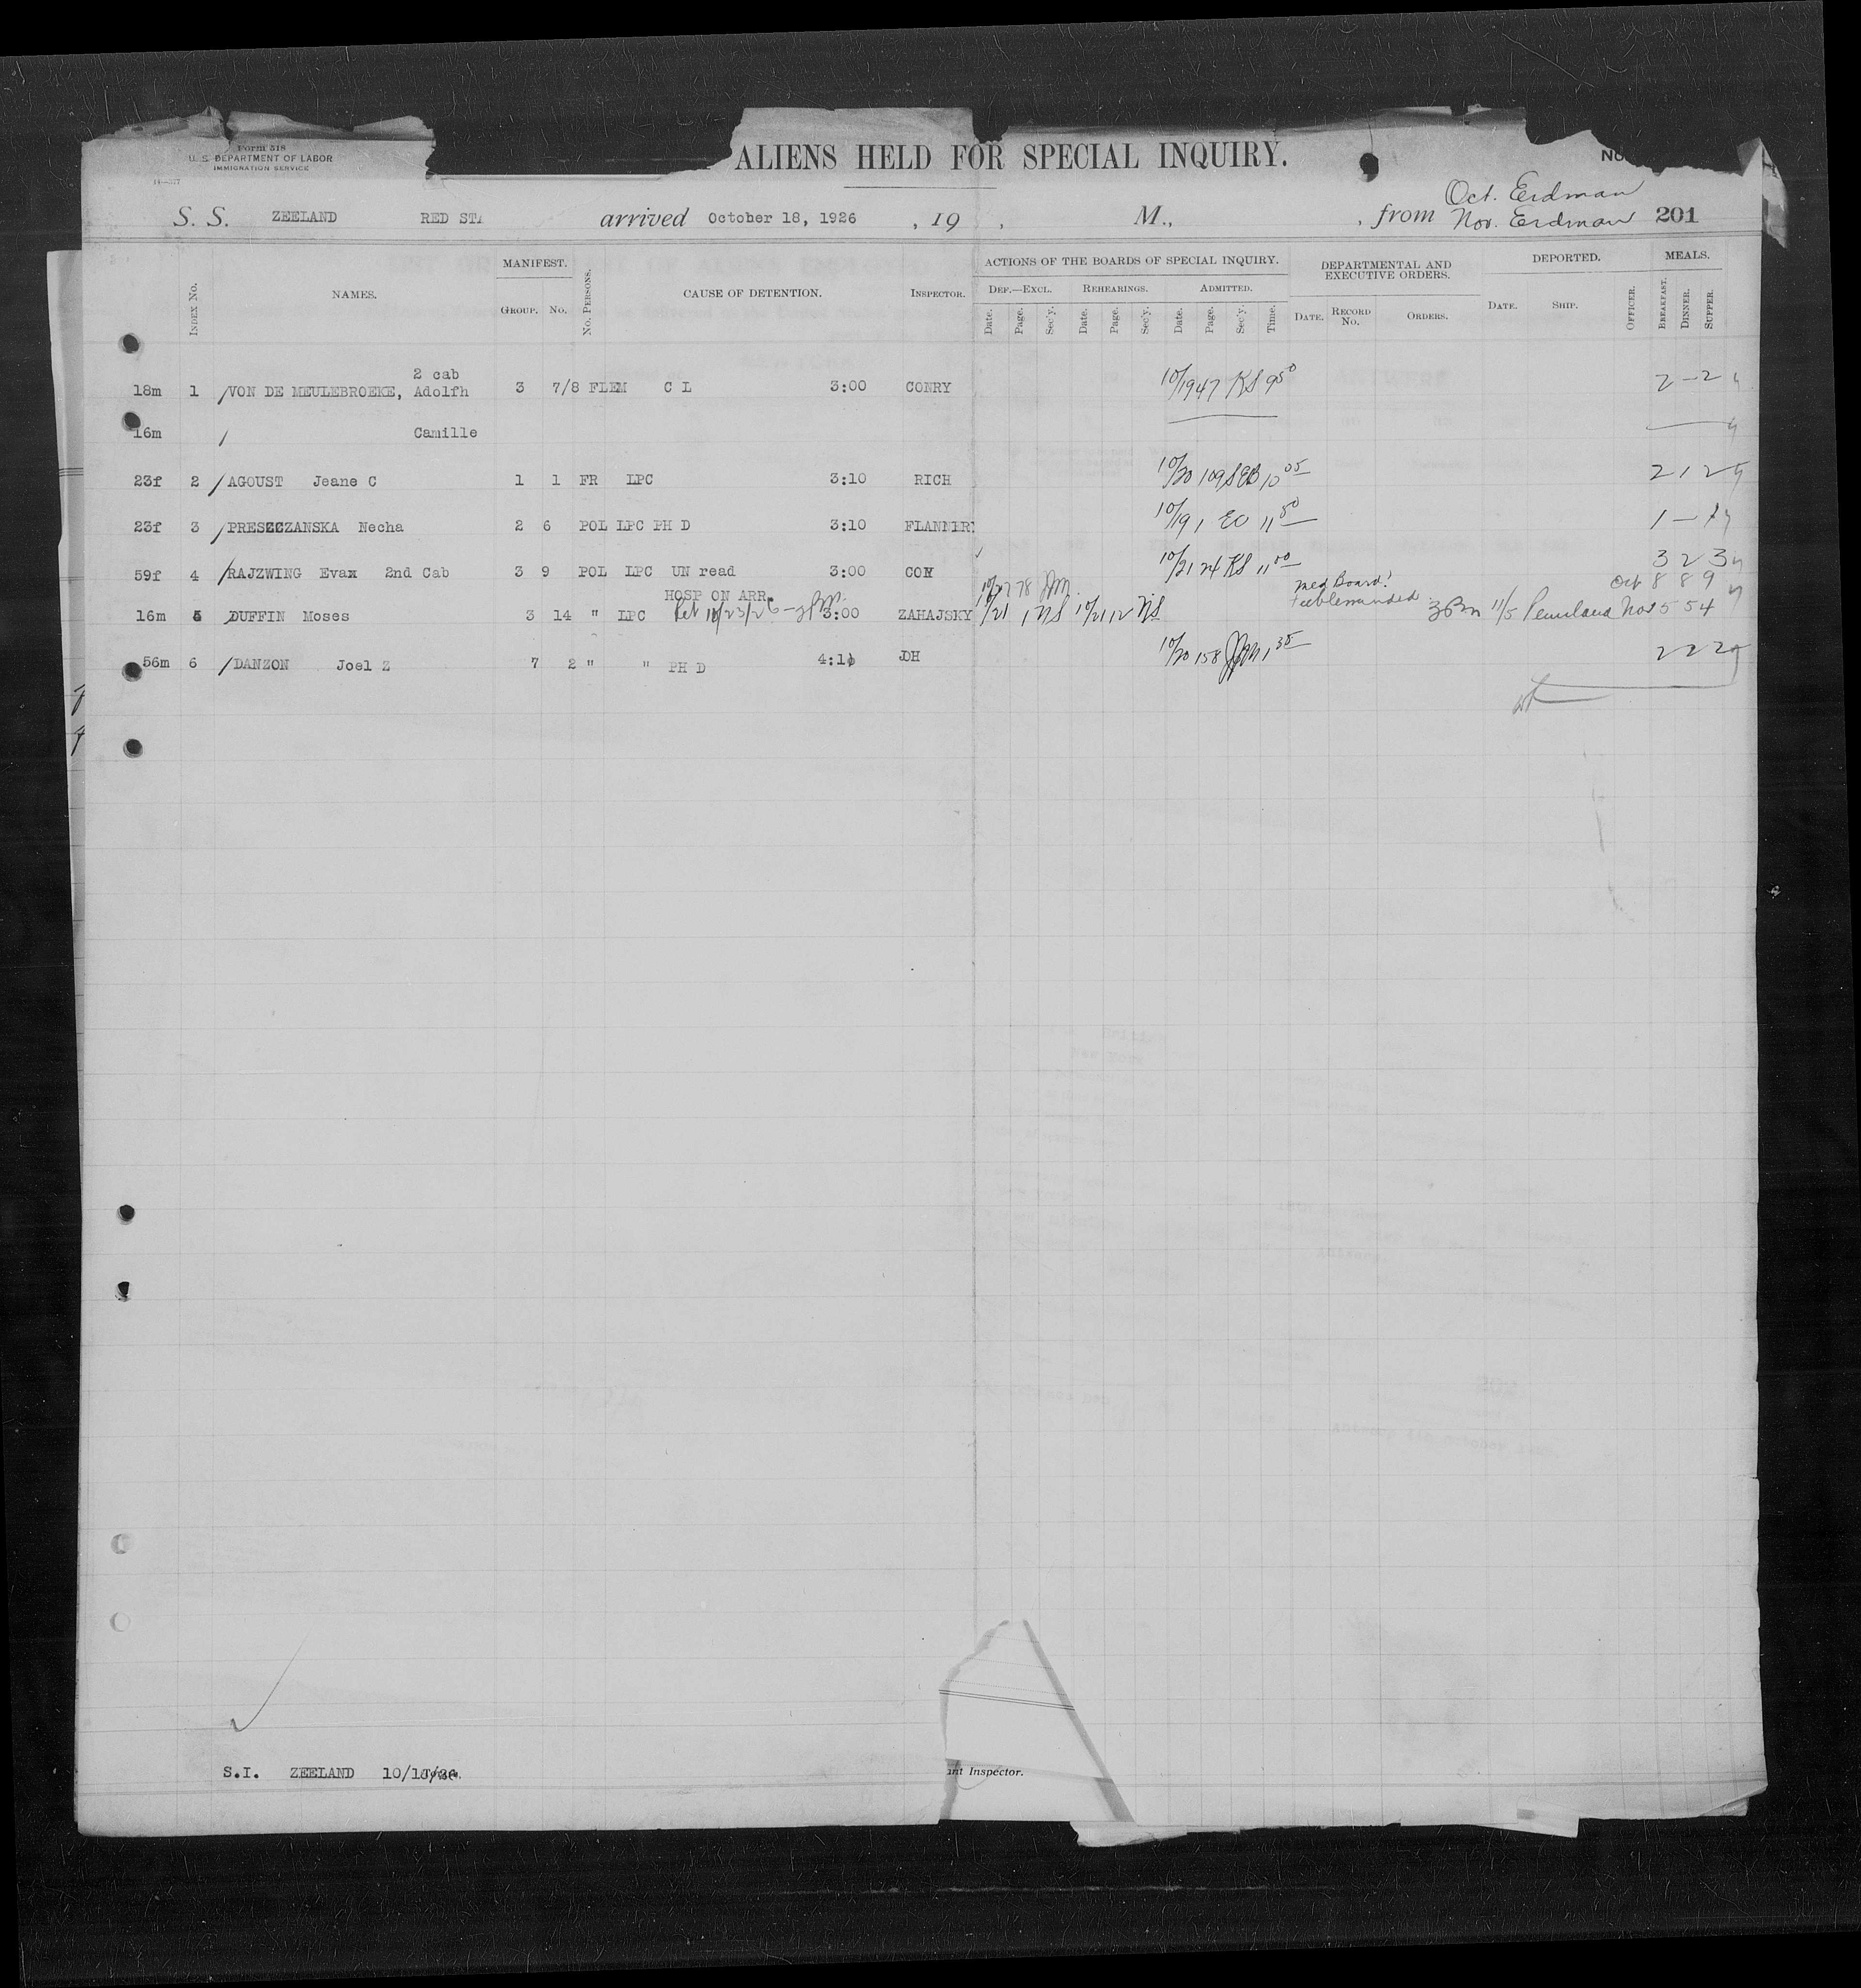 Form 518
U. S. DEPARTMENT OF LABOR
IMMIGRATION SERVICE
ALIENS HELD FOR SPECIAL INQUIRY.
No.
Oct. Erdman
S. S. ZEELAND RED STA arrived October 18, 1926 , 19 , M., , from Nov. Erdman 201
INDEX No. NAMES. MANIFEST. GROUP. No. No. PERSONS. CAUSE OF DETENTION. INSPECTOR. ACTIONS OF THE BOARDS OF SPECIAL INQUIRY. DEF.—EXCL. REHEARINGS. ADMITTED. DEPARTMENTAL AND EXECUTIVE ORDERS. DEPORTED. MEALS.
Date. Page. Sec'y. Date. Page. Sec'y. Date. Page. Sec'y. Time. DATE. RECORD No. ORDERS. DATE. SHIP. OFFICER. BREAKFAST. DINNER. SUPPER.
2 cab
18m 1 /VON DE MEULEBROEKE, Adolfh 3 7/8 FLEM C L 3:00 CONRY 10/19 47 KS 9 50 2 - 2
16m / Camille
23f 2 /AGOUST Jeane C 1 1 FR LPC 3:10 RICH 10/20 109 SEB 10 05 2 1 2
23f 3 /PRESZCZANSKA Necha 2 6 POL LPC PH D 3:10 FLANNERY 10/19 1 EO 11 50 1 - 1
59f 4 /RAJZWING Evax 2nd Cab 3 9 POL LPC UN read 3:00 COX 10/21 24 KS 11 00 3 2 3
HOSP ON ARR. 10/27 78 Med Board! Oct 8 8 9
16m 5 DUFFIN Moses 3 14 " LPC Ret 10/23/26 3:00 ZAHAJSKY 1/21 1 NS 10/21 12 NS feebleminded 11/5 Pennland Nov 5 5 4
56m 6 /DANZON Joel Z 7 2 " " PH D 4:10 DH 10/20 158 1 35 2 2 2
S.I. ZEELAND 10/18/26
ant Inspector.